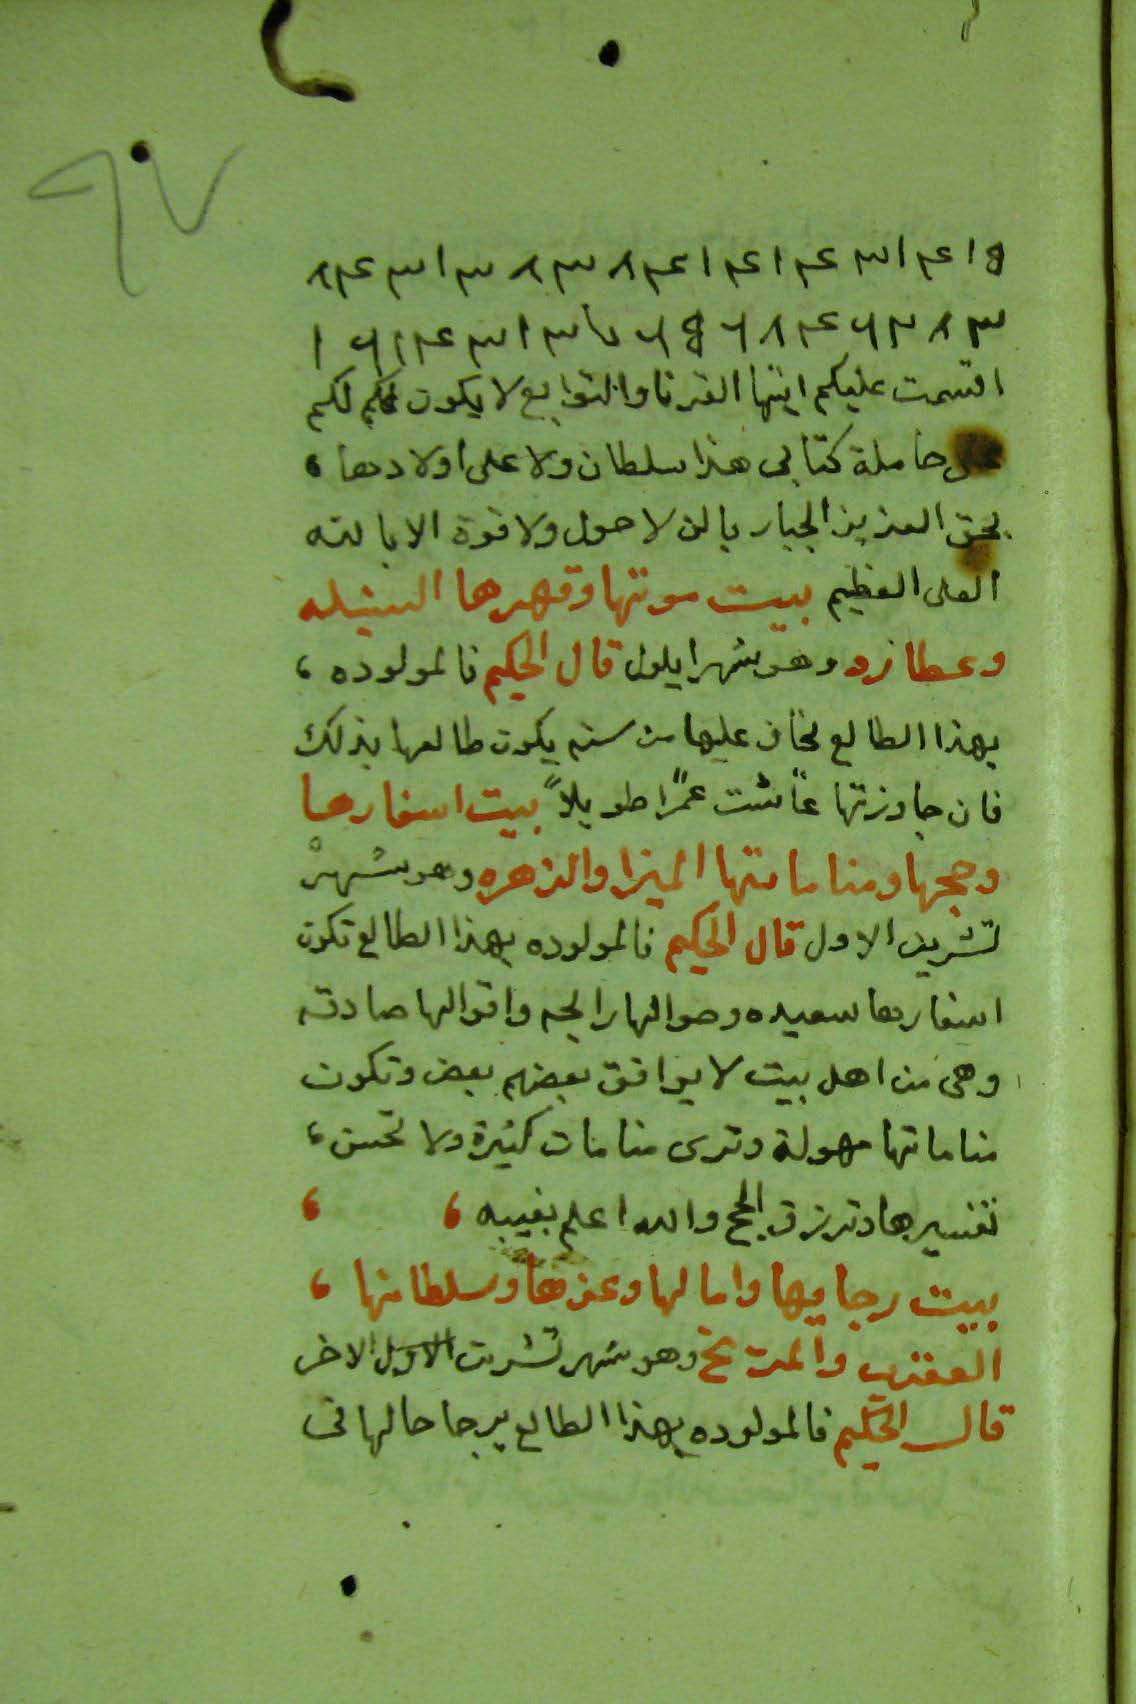 ٩٧
اقسمت عليكم ايتها القرنا والتوابع لا يكون لكم
على حاملة كتابى هذا سلطان ولا على اولادها ،
بحق العزيز الجبار بالف لا حول ولا قوة الا بالله
العلى العظيم بيت موتها وقهرها السنبله
وعطارد وهو شهر ايلول قال الحكيم فالمولوده ،
بهذا الطالع يخاف عليها من سنه يكون طالعها بذلك
فان جاوزتها عاشت عمرًا طويلاً بيت اسفارها
وحجها ومناماتها الميزا والزهره وهو شهر
تشرين الاول قال الحكيم فالمولوده بهذا الطالع تكون
اسفارها سعيده وحوالها رابحه واقوالها صادقه
وهى من اهل بيت لا يوافق بعضهم بعض وتكون
مناماتها مهولة وترى منامات كثيرة ولا تحسن ،
تفسيرها وترزق الحج والله اعلم بغيبه ، ،
بيت رجايها وامالها وعزها وسلطانها ،
العقرب والمريخ وهو شهر تشرين الاول الاخر
قال الحكيم فالمولوده بهذا الطالع يرجا حالها فى